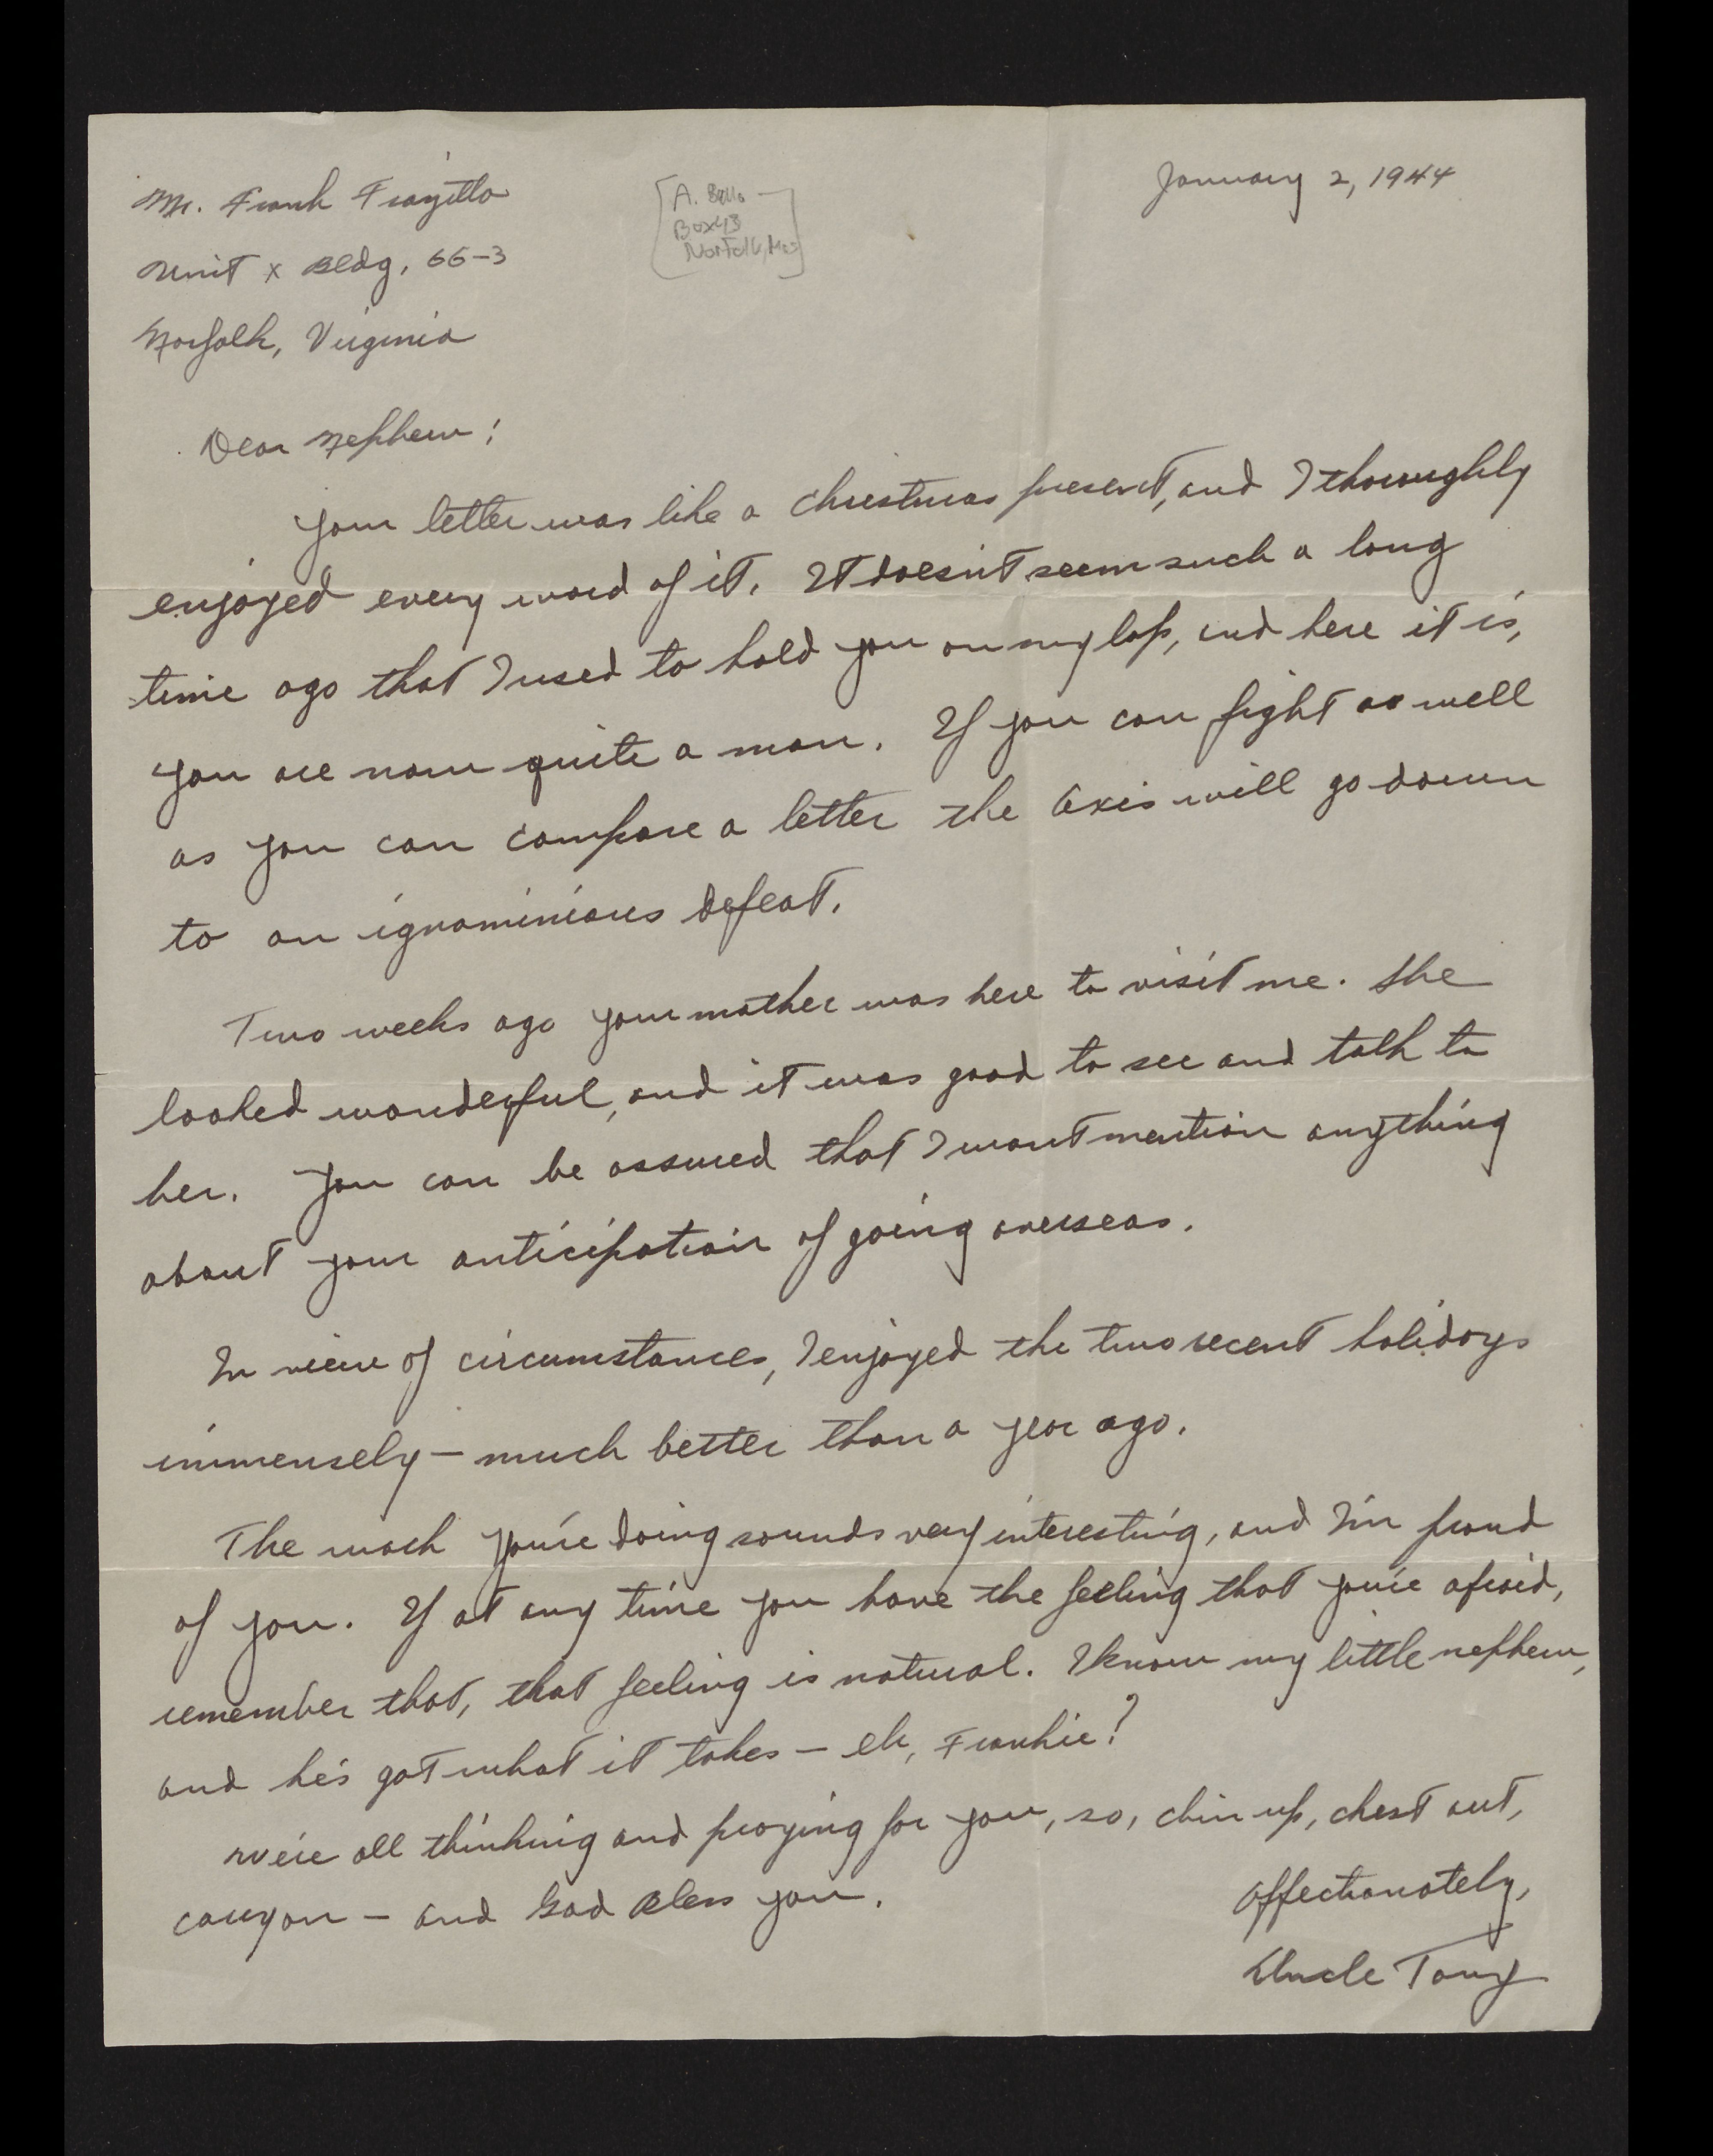 January 2, 1944
Mr. Frank
Unit X Bldg, 66-3
Norfolk, Virginia
[A. Bello
Box 43
Norfolk, Mas]
Dear Nephew:
Your letter was like a Christmas present, and I thoroughly
enjoyed every word of it. It doesn't seem such a long
time ago that I used to hold you on my lap, and here it is,
you are now quite a man. If you can fight as well
as you can compose a letter the Axis will go down
to an ignominious defeat.
Two weeks ago your mother was here to visit me. She
looked wonderful, and it was good to see and talk to
her. You can be assured that I wont mention anything
about your anticipation of going overseas.
In view of circumstances, I enjoyed the two recent holidays
immensely — much better than a year ago.
The work you're doing sounds very interesting, and I'm proud
of you. If at any time you have the feeling that you're afraid,
remember that, that feeling is natural. I know my little nephew,
and he's got what it takes — eh, Frankie?
We're all thinking and praying for you, so, chin up, chest out,
carry on — and God Bless you.
Affectionately,
Uncle Tony